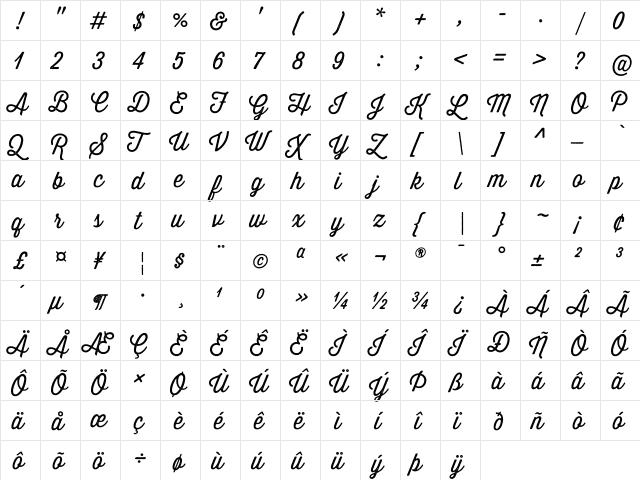 ! " # $ % & ' ( ) * + , - . / 0
1 2 3 4 5 6 7 8 9 : ; < = > ? @
A B C D E F G H I J K L M N O P
Q R S T U V W X Y Z [ \ ] ^ _ `
a b c d e f g h i j k l m n o p
q r s t u v w x y z { | } ~ ¡ ¢
£ ¤ ¥ ¦ § ¨ © ª « ¬ ® ¯ ° ± ² ³
´ µ ¶ · ¸ ¹ º » ¼ ½ ¾ ¿ À Á Â Ã
Ä Å Æ Ç È É Ê Ë Ì Í Î Ï Ð Ñ Ò Ó
Ô Õ Ö × Ø Ù Ú Û Ü Ý Þ ß à á â ã
ä å æ ç è é ê ë ì í î ï ð ñ ò ó
ô õ ö ÷ ø ù ú û ü ý þ ÿ